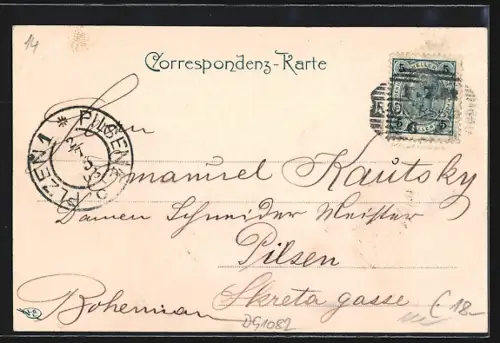 14
Correspondenz-Karte
5 5
5 5
Herrn
PILSEN 1
PLZEŇ 1
Emanuel Kautsky
Damen Schneider Meister
Pilsen
Skreta gasse
Bohemian
DG1082
18-